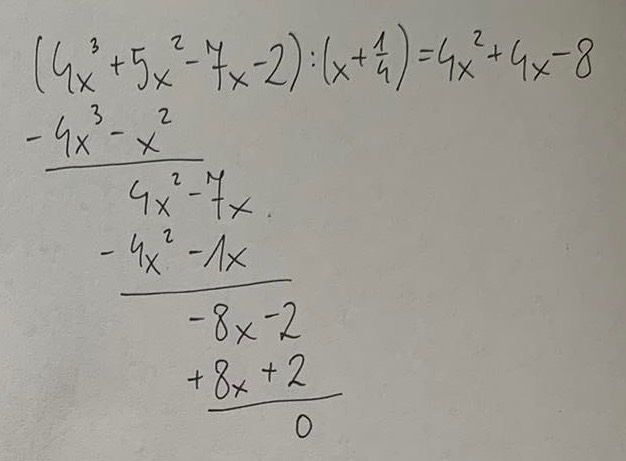 (4x³+5x²-7x-2):(x+1/4)=4x²+4x-8
-4x³-x²
4x²-7x
-4x²-1x
-8x-2
+8x+2
0